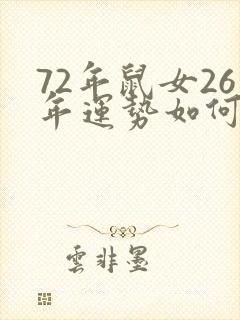 72年鼠女26
年運勢如何
雲非墨